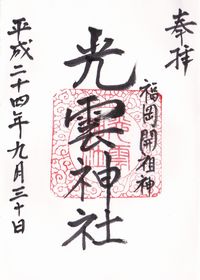 奉拝
福岡開祖神
光雲神社
平成二十四年九月三十日